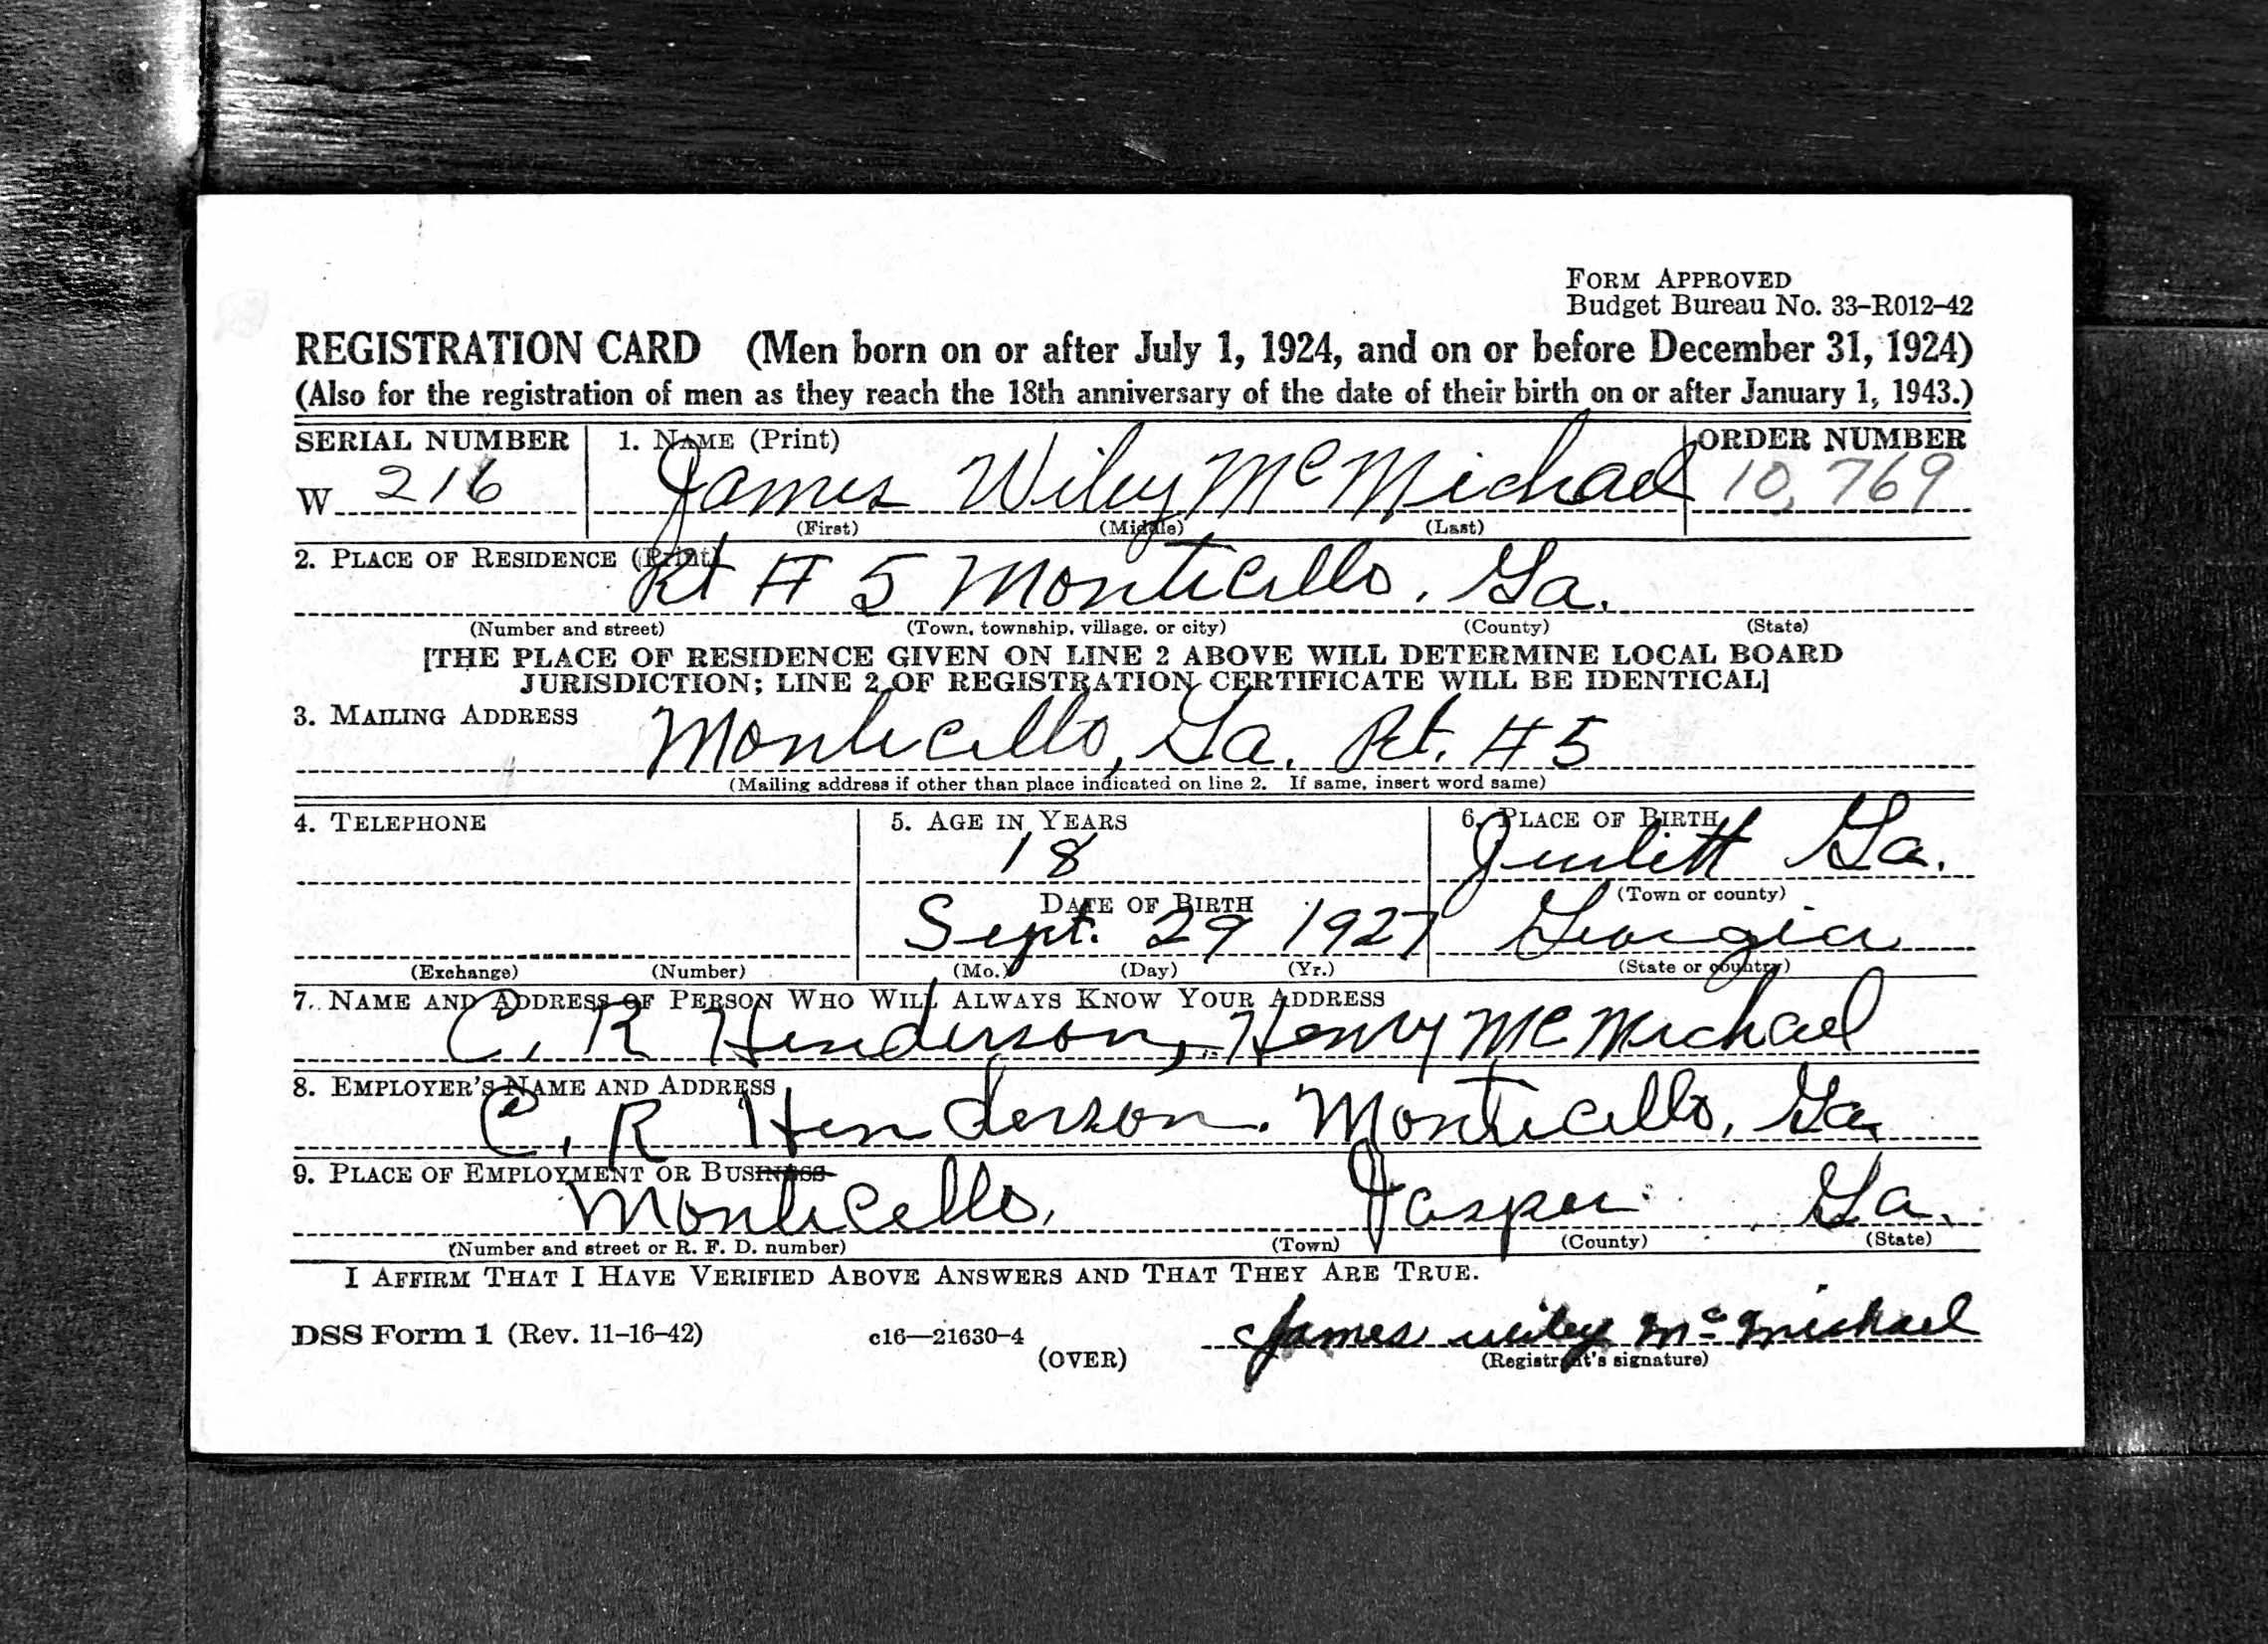 FORM APPROVED
Budget Bureau No. 33-R012-42
REGISTRATION CARD (Men born on or after July 1, 1924, and on or before December 31, 1924)
(Also for the registration of men as they reach the 18th anniversary of the date of their birth on or after January 1, 1943.)
SERIAL NUMBER 1. NAME (Print) ORDER NUMBER
W 216 James Wiley McMichael 10,769
(First) (Middle) (Last)
2. PLACE OF RESIDENCE (Print)
Rt # 5 Monticello, Ga.
(Number and street) (Town, township, village, or city) (County) (State)
[THE PLACE OF RESIDENCE GIVEN ON LINE 2 ABOVE WILL DETERMINE LOCAL BOARD
JURISDICTION; LINE 2 OF REGISTRATION CERTIFICATE WILL BE IDENTICAL]
3. MAILING ADDRESS
Monticello, Ga. Rt. #5
(Mailing address if other than place indicated on line 2. If same, insert word same)
4. TELEPHONE 5. AGE IN YEARS 6. PLACE OF BIRTH
18 Juliett Ga.
DATE OF BIRTH (Town or county)
Sept. 29 1927 Georgia
(Exchange) (Number) (Mo.) (Day) (Yr.) (State or country)
7. NAME AND ADDRESS OF PERSON WHO WILL ALWAYS KNOW YOUR ADDRESS
C. R Henderson, Henry McMichael
8. EMPLOYER'S NAME AND ADDRESS
C. R Henderson. Monticello, Ga.
9. PLACE OF EMPLOYMENT OR BUSINESS
Monticello, Jasper Ga.
(Number and street or R. F. D. number) (Town) (County) (State)
I AFFIRM THAT I HAVE VERIFIED ABOVE ANSWERS AND THAT THEY ARE TRUE.
James wiley McMichael
DSS Form 1 (Rev. 11-16-42) c16—21630-4
(OVER) (Registrant's signature)